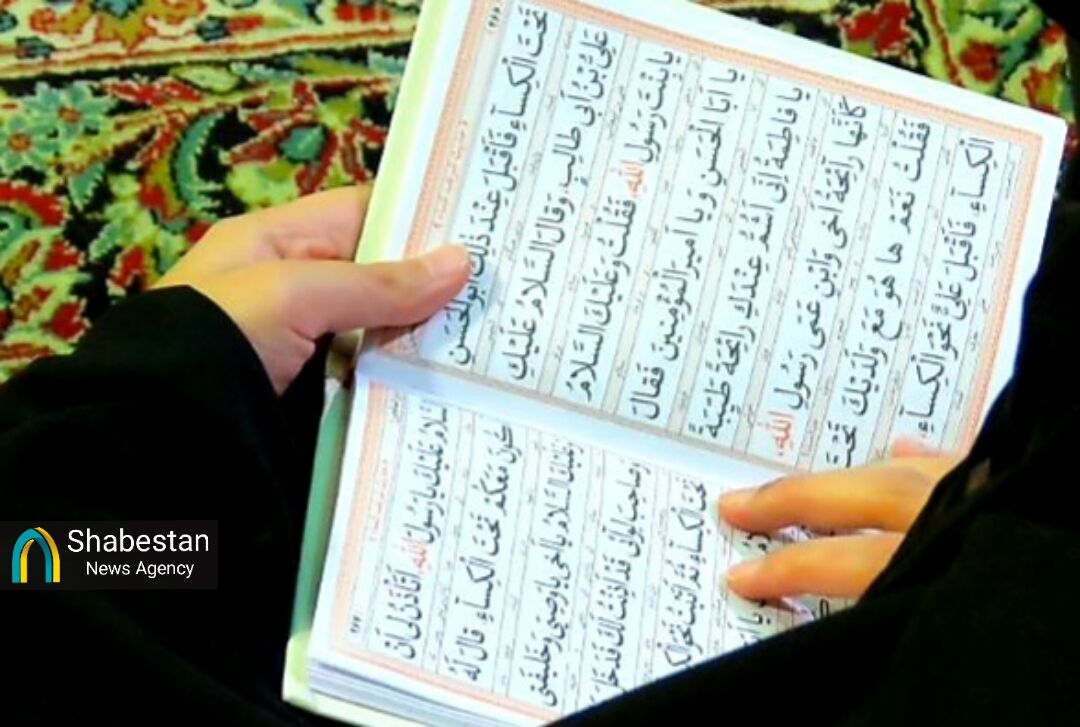 تَحْتَ الْكِسآءِ فَاَقْبَلَ عِنْدَ ذلِكَ اَبُو الْحَسَنِ
عَلِىُّ بْنُ اَبى طالِبٍ، وَقالَ السَّلامُ عَلَيْكِ
يا بِنْتَ رَسُولِ اللهِ، فَقُلْتُ وَعَلَيْكَ السَّلامُ
يا اَبَا الْحَسَنِ وَ يا اَميرَ الْمُؤْمِنينَ فَقالَ
يا فاطِمَةُ اِنّى اَشَمُّ عِنْدَكِ رائِحَةً طَيِّبَةً
كَاَنَّها رآئِحَةُ اَخى وَابْنِ عَمّى رَسُولِ اللهِ،
فَقُلْتُ نَعَمْ ها هُوَ مَعَ وَلَدَيْكَ تَحْتَ
الْكِسآءِ، فَاَقْبَلَ عَلِىٌّ نَحْوَ الْكِسآءِ،
السَّلامُ عَلَيْكَ يا رَسُولَ اللهِ، اَتَأْذَنُ لى اَنْ
مَعَكُمْ تَحْتَ الْكِسآءِ قالَ لَهُ
وَعَلَيْكَ السَّلامُ يا اَخى يا وَصِيّى وَ خَليفَتى
وَصاحِبَ لِوآئى قَدْ اَذِنْتُ لَكَ
تَحْتَ الْكِسآءِ، ثُمَّ اَتَيْتُ نَحْوَ
Shabestan
News Agency